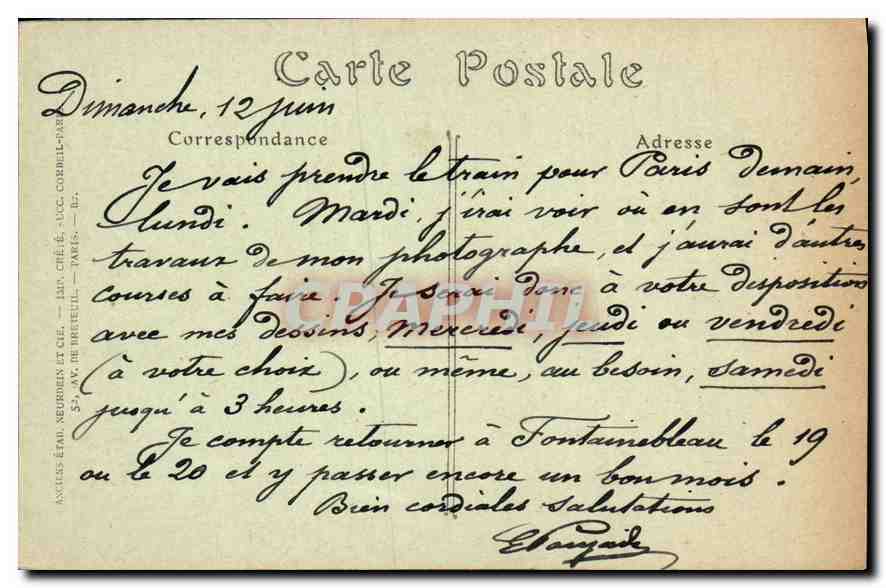 Carte Postale
Dimanche, 12 juin
Correspondance
Adresse
Je vais prendre le train pour Paris demain,
lundi. Mardi, j'irai voir où en sont les
travaux de mon photographe, et j'aurai d'autres
courses à faire. Je serai donc à votre disposition
avec mes dessins, mercredi, jeudi ou vendredi
(à votre choix), ou même, au besoin, samedi
jusqu'à 3 heures.
Je compte retourner à Fontainebleau le 19
ou le 20 et y passer encore un bon mois.
Bien cordiales salutations
ANCIENS ÉTAB. NEURDEIN ET CIE. — IMP. CRÉTÉ, SUCC. CORBEIL-PARIS
52, AV. DE BRETEUIL. — PARIS. —
CPAPHIL